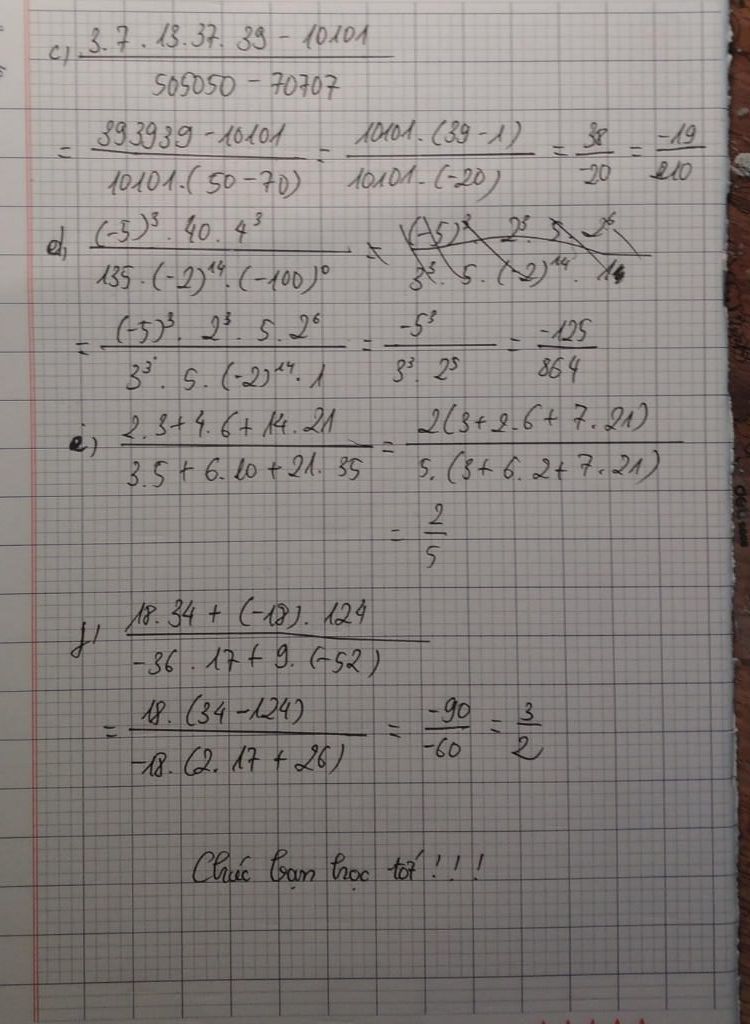 c, 3.7.13.37.39 - 10101 / 505050 - 70707
= 393939 - 10101 / 10101.(50 - 70) = 10101.(39 - 1) / 10101.(-20) = 38 / -20 = -19 / 10
d, (-5)³.40.4³ / 135.(-2)¹⁴.(-100)⁰ = (-5)³ 2³ 5. 2⁶ / 3³. 5. (-2)¹⁴. 1
= (-5)³. 2³. 5. 2⁶ / 3³. 5. (-2)¹⁴. 1 = -5³ / 3³. 2⁵ = -125 / 864
e) 2.3 + 4.6 + 14.21 / 3.5 + 6.10 + 21.35 = 2(3 + 2.6 + 7.21) / 5.(3 + 6.2 + 7.21)
= 2 / 5
f, 18.34 + (-18).124 / -36.17 + 9.(-52)
= 18.(34 - 124) / -18.(2.17 + 26) = -90 / -60 = 3 / 2
Chúc bạn học tốt!!!